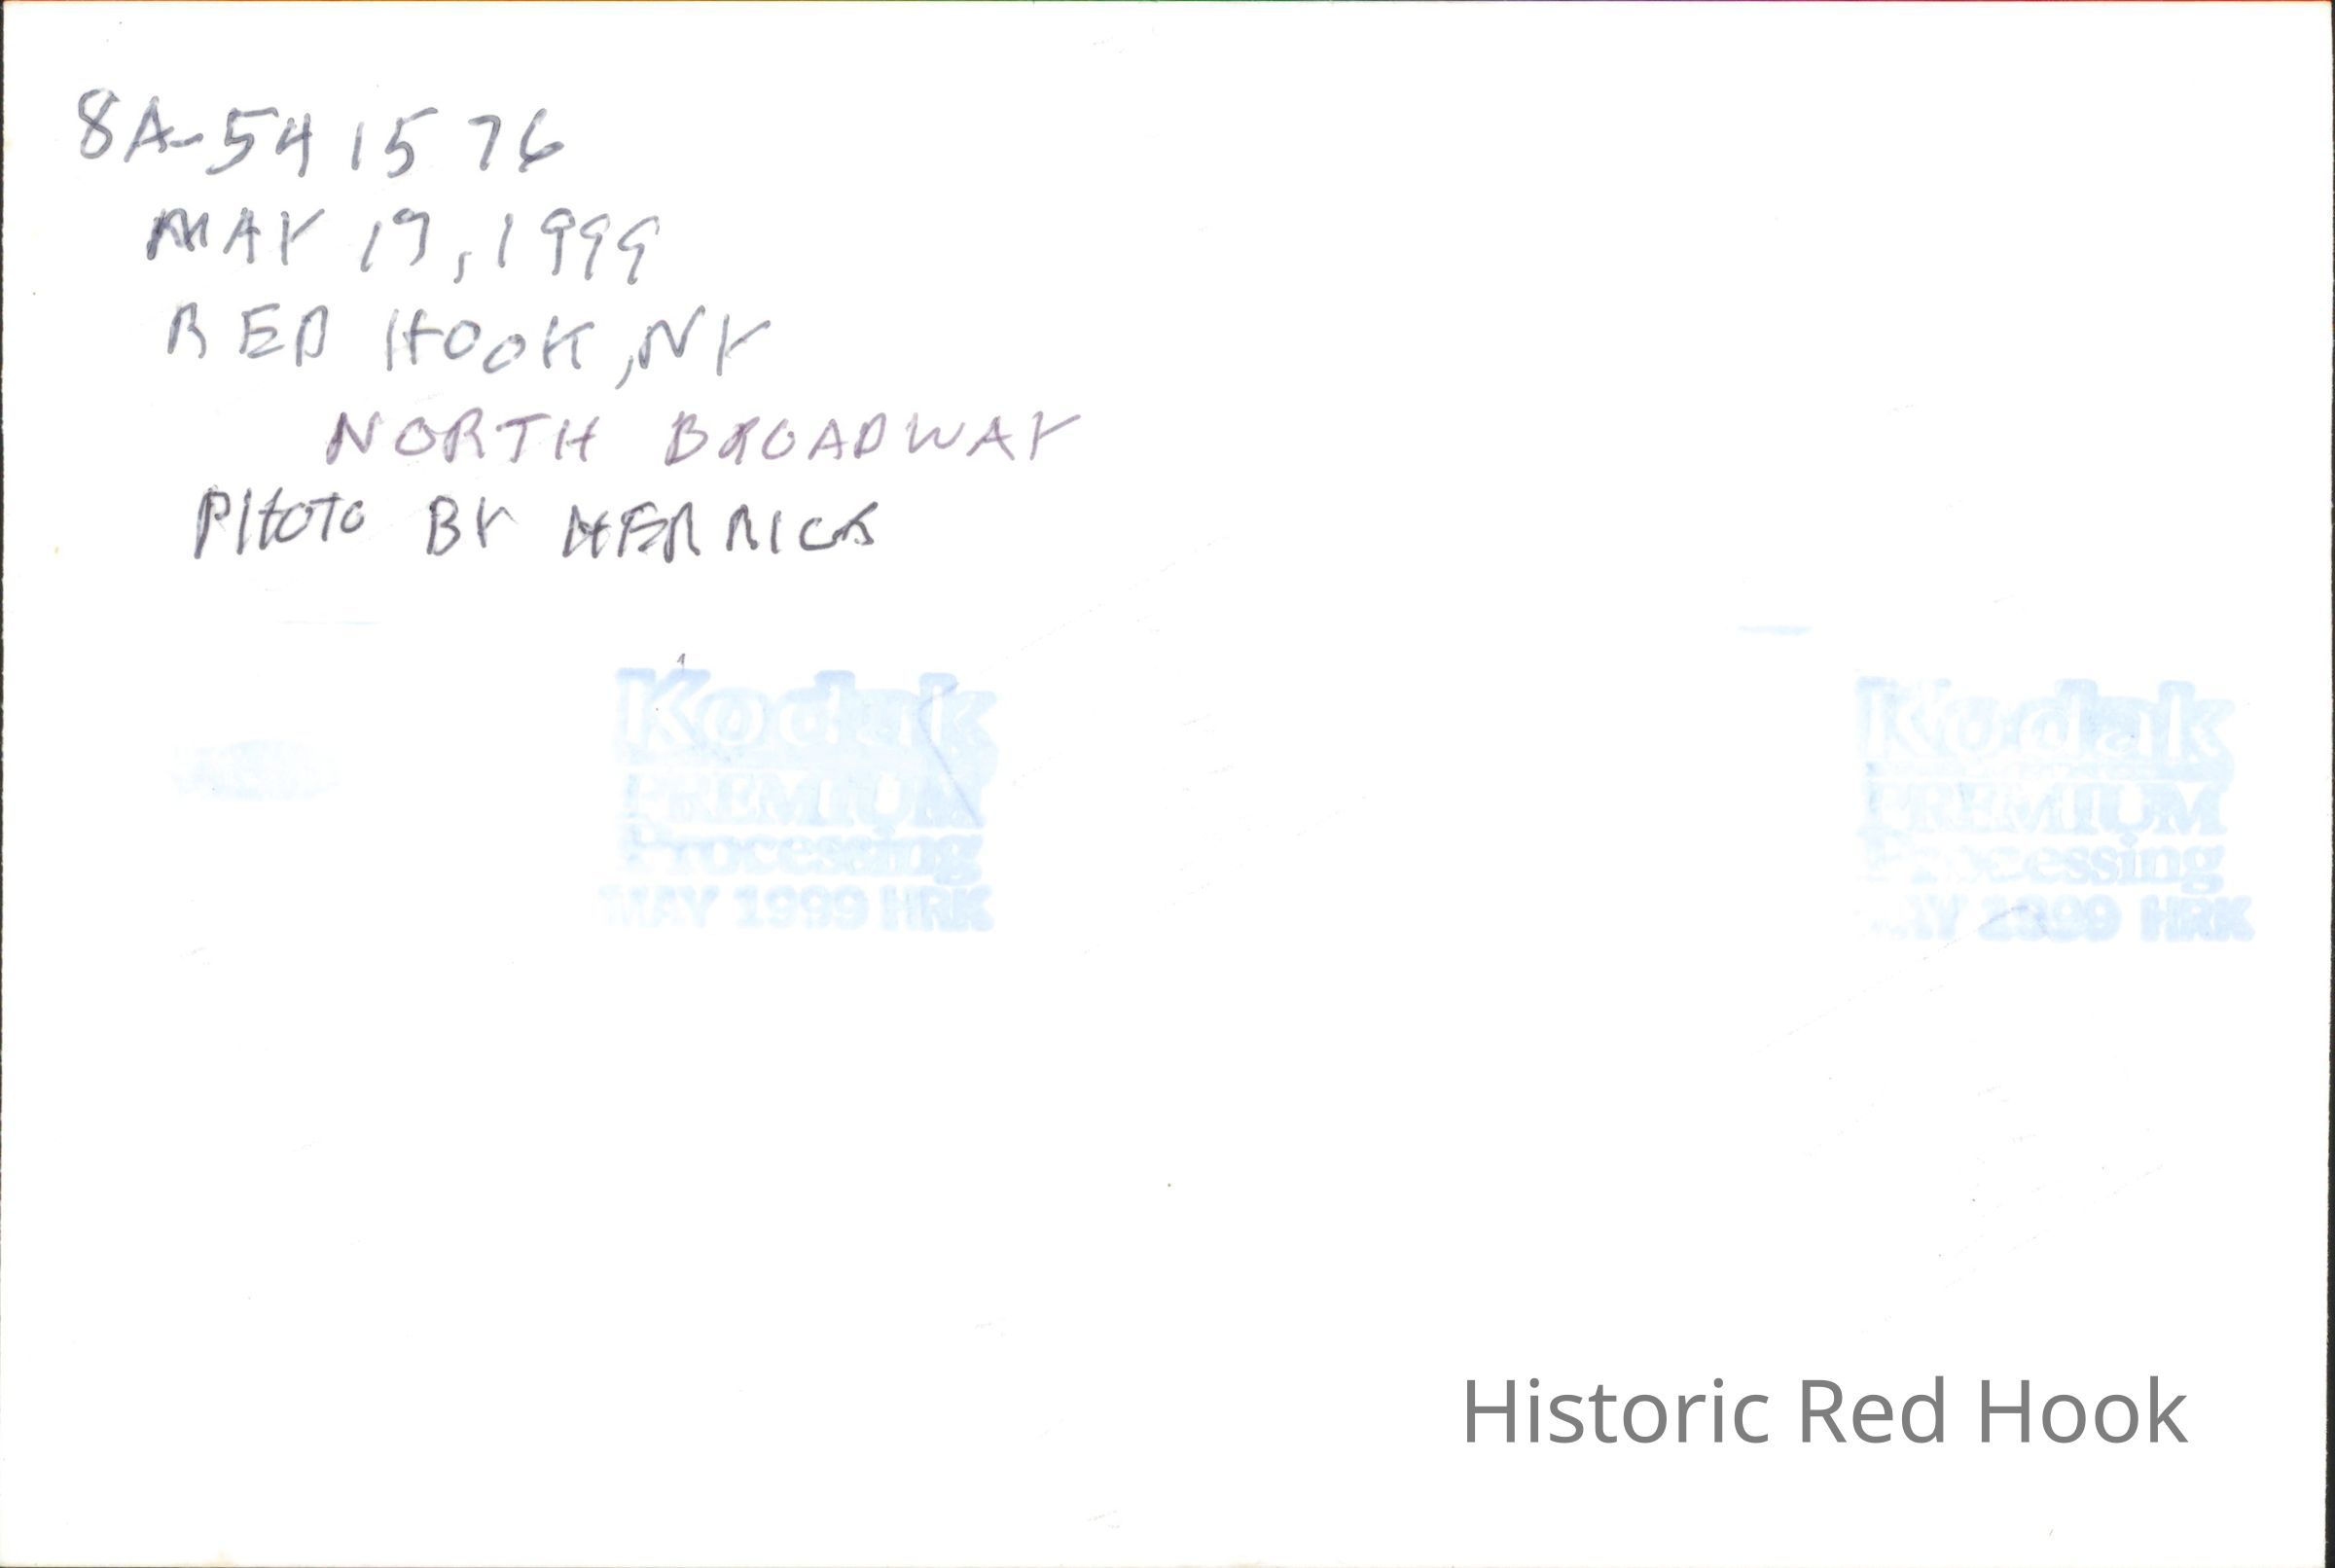 8A-541576
MAY 19, 1999
RED HOOK, NY
NORTH BROADWAY
PHOTO BY HERRICK
Kodak
PREMIUM
Processing
MAY 1999 HRK
Kodak
PREMIUM
Processing
MAY 1999 HRK
Historic Red Hook